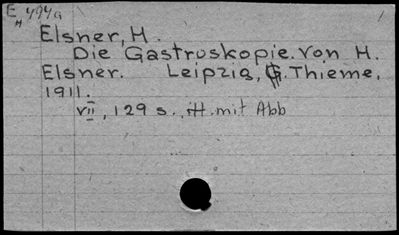 E 494a
H
Elsner, H.
Die Gastroskopie. Von H.
Elsner. Leipzig, G. Thieme,
1911.
vii, 129 s., ill. mit Abb